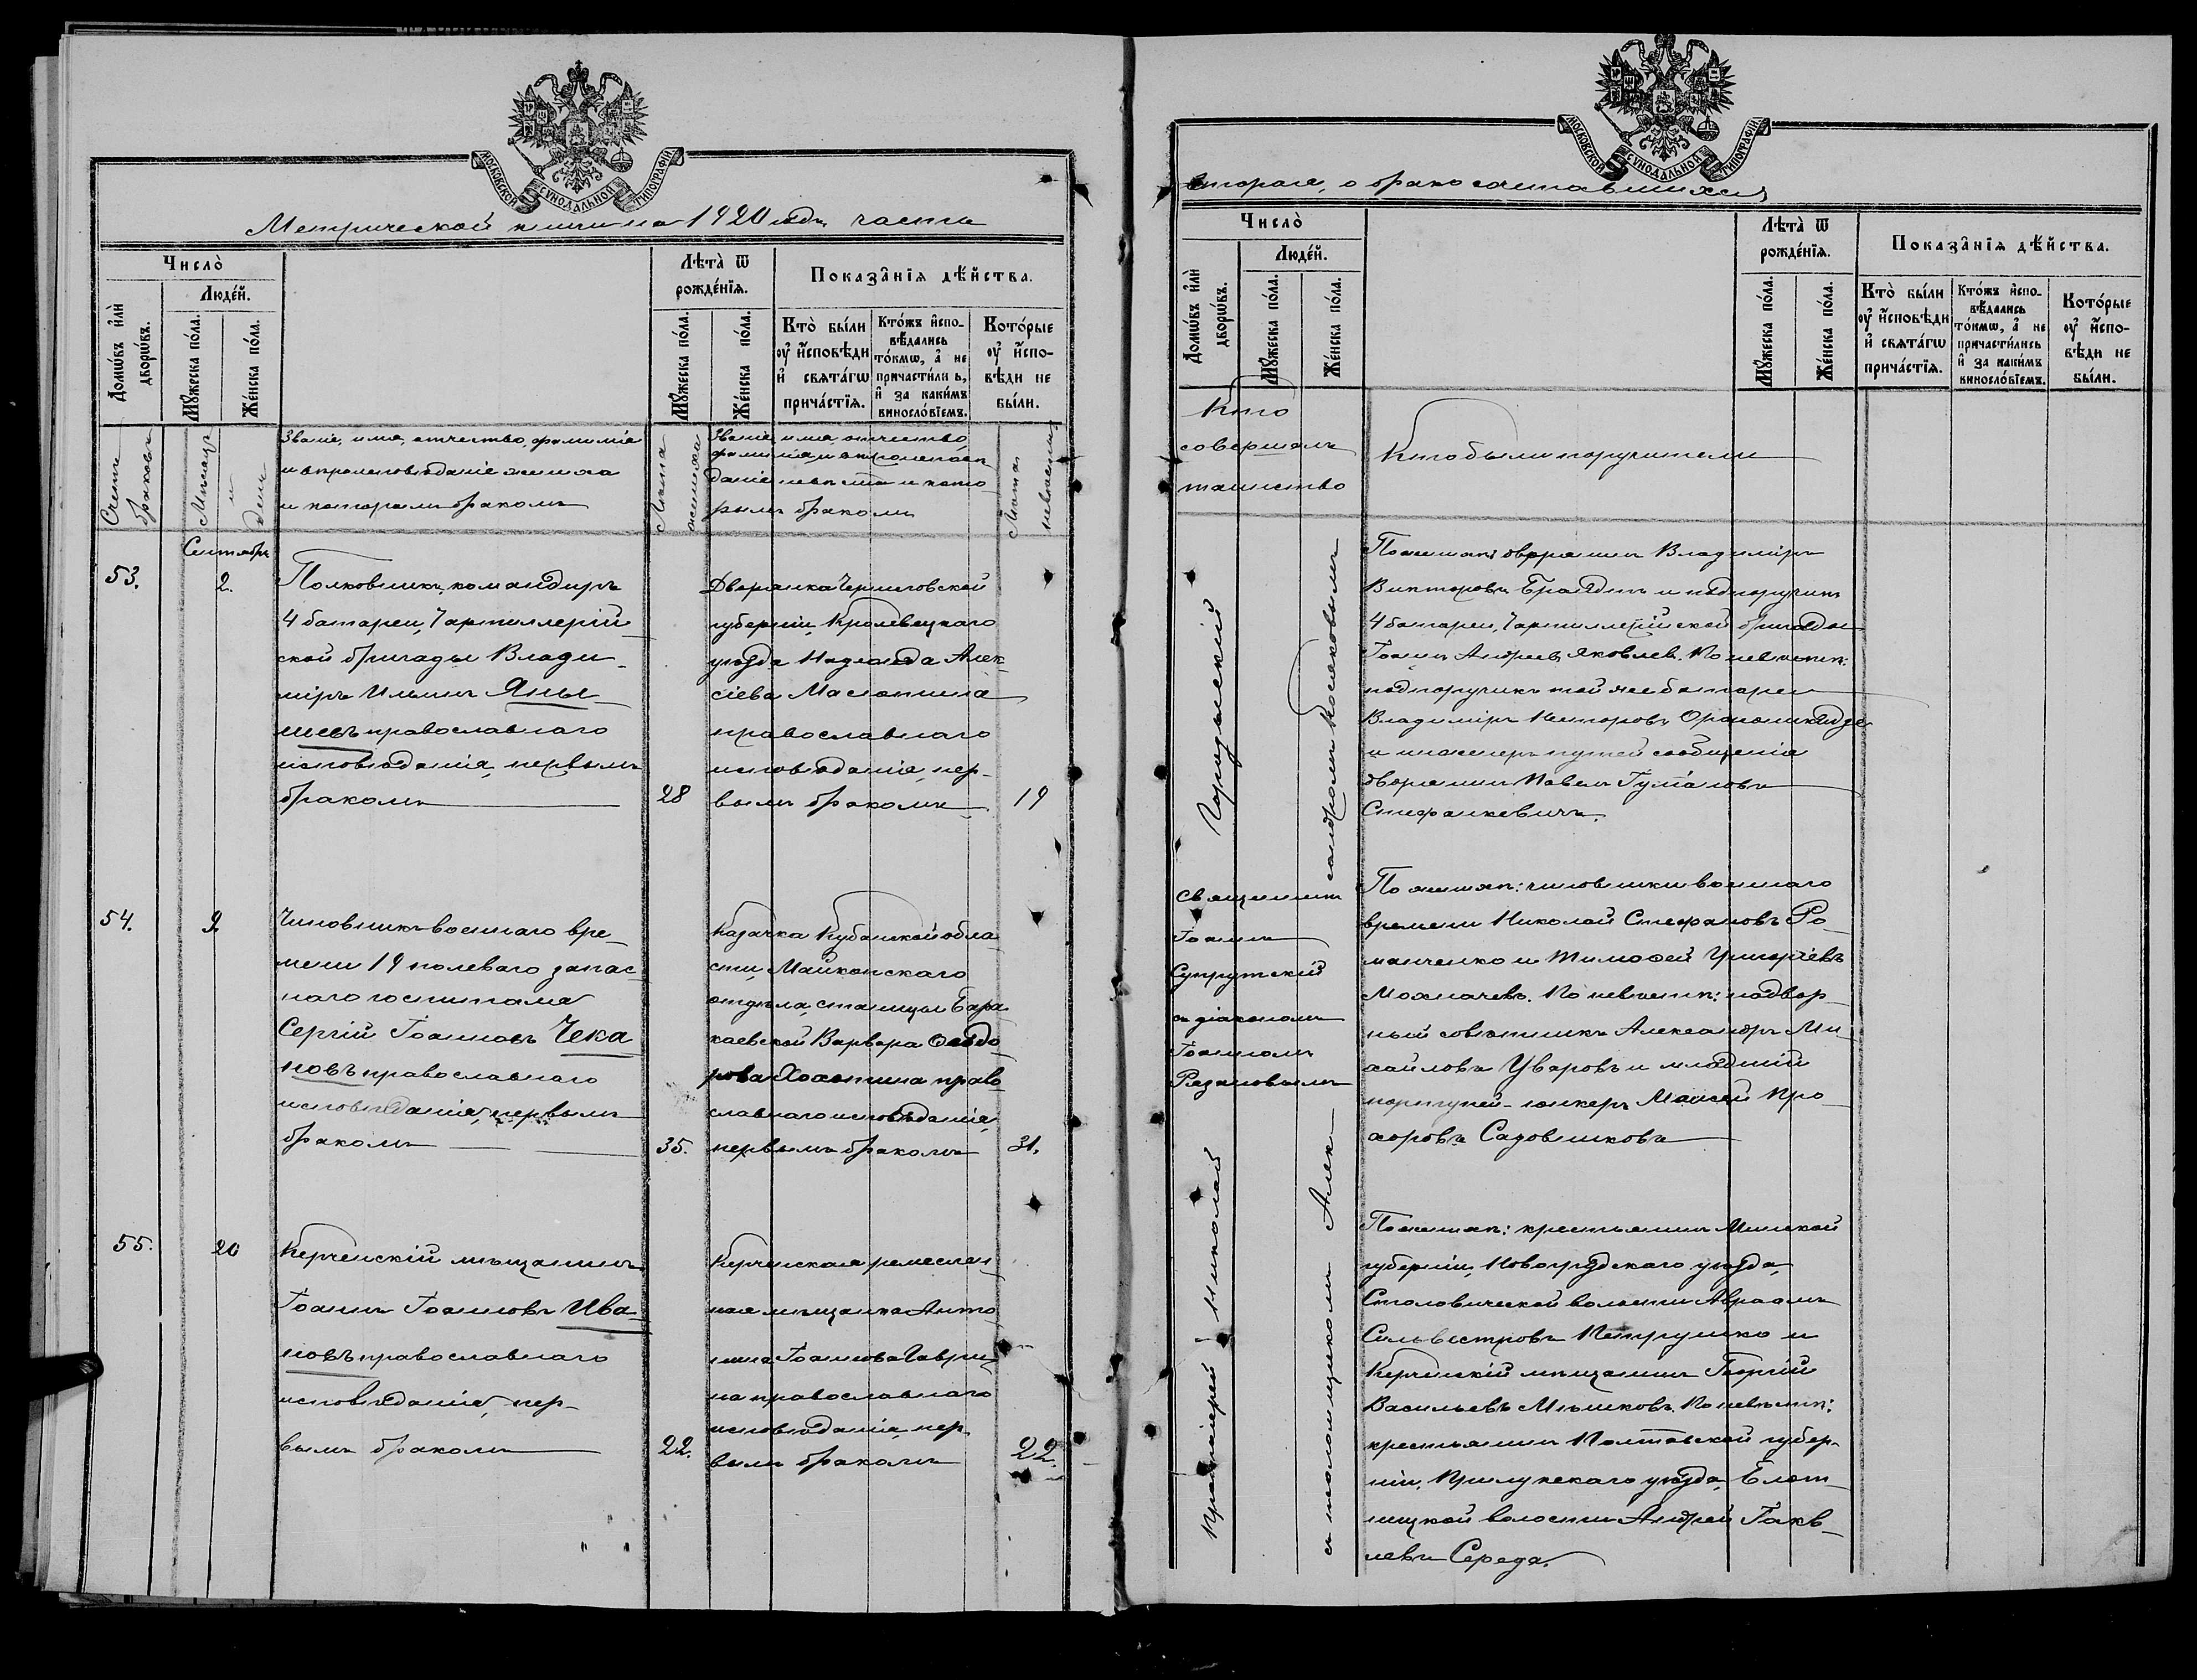 МОСКОВСКОЙ СѴНОДАЛЬНОЙ ТИПОГРАФІИ
Метрической книги на 1920 годъ часть
Число̀
Людей.
Домѡвъ и҆лѝ дворѡвъ.
Мꙋжеска по́ла.
Же́нска по́ла.
Лѣта̀ ѿ рожде́нїѧ.
Мꙋжеска по́ла.
Же́нска по́ла.
Показа̑нїѧ дѣ́йства.
Кто̀ бы́ли ᲂу҆ и҆сповѣди и҆ свѧта́гѡ прича́стїѧ.
Кто́жъ и҆сповѣдались то́кмѡ, а҆ не причасти́лись, и҆ за каки́мъ виносло́вїемъ.
Кото́рые ᲂу҆ и҆сповѣди не бы́ли.
Счетъ браковъ
Мѣсяцъ и день
Званіе, имя, отчество, фамилія
и вѣроисповѣданіе жениха
и которымъ бракомъ
Лѣта жениха
Званіе, имя, отчество,
фамилія и вѣроисповѣ-
даніе невѣсты и кото-
рымъ бракомъ
Лѣта невѣсты
Сентябрь
53.
2.
Полковникъ, командиръ
4 батареи, 7 артиллерій-
ской бригады Влади-
міръ Ильинъ Яны-
шевъ православнаго
исповѣданія, первымъ
бракомъ
28
Дворянка Черниговской
губерніи, Кролевецкаго
уѣзда Надежда Алек-
сіева Маслотина
православнаго
исповѣданія, пер-
вымъ бракомъ
19
54.
9.
Чиновникъ военнаго вре-
мени 19 полеваго запас-
наго госпиталя
Сергій Іоанновъ Чека-
новъ православнаго
исповѣданія, первымъ
бракомъ
35.
Казачка Кубанской обла-
сти, Майкопскаго
отдѣла, станицы Бара-
каевской Варвара Ѳеодо-
рова Хохотина право-
славнаго исповѣданія,
первымъ бракомъ
31.
55.
20
Керченскій мѣщанинъ
Іоаннъ Іоанновъ Ива-
новъ православнаго
исповѣданія, пер-
вымъ бракомъ
22.
Керченская ремеслен-
ная мѣщанка Анто-
нина Іоаннова Гаври-
на православнаго
исповѣданія, пер-
вымъ бракомъ
22.
МОСКОВСКОЙ СѴНОДАЛЬНОЙ ТИПОГРАФІИ
вторая, о бракосочетавшихся
Число̀
Людей.
Домѡвъ и҆лѝ дворѡвъ.
Мꙋжеска по́ла.
Же́нска по́ла.
Лѣта̀ ѿ рожде́нїѧ.
Мꙋжеска по́ла.
Же́нска по́ла.
Показа̑нїѧ дѣ́йства.
Кто̀ бы́ли ᲂу҆ и҆сповѣди и҆ свѧта́гѡ прича́стїѧ.
Кто́жъ и҆сповѣдались то́кмѡ, а҆ не причасти́лись и҆ за каки́мъ виносло́вїемъ.
Кото́рые ᲂу҆ и҆сповѣди не бы́ли.
Кто
совершалъ
таинство
Кто были поручители
По женихѣ: дворянинъ Владиміръ
Викторовъ Брандтъ и подпоручикъ
4 батареи, 7 артиллерійской бригады
Іоаннъ Андреевъ Яковлев. По невѣстѣ:
подпоручикъ той же батареи
Владиміръ Несторовъ Орджоникидзе
и инженеръ путей сообщенія
дворянинъ Павелъ
Стефанкевичъ.
Священникъ
Іоаннъ
Супрутскій
съ діакономъ
Іоанномъ
Рязановымъ
По женихѣ: чиновники военнаго
времени Николай Стефановъ Ро-
манченко и Тимоѳей Григоріевъ
Мохначевъ. По невѣстѣ: надвор-
ный совѣтникъ Александръ Ми-
хайловъ Уваровъ и младшій
портупей-юнкеръ Моисей Про-
хоровъ Садовниковъ
Протоіерей Николай
съ псаломщикомъ Алек-
сандромъ Косяковымъ
По женихѣ: крестьянинъ Минской
губерніи, Новогрудскаго уѣзда,
Столовической волости Авраамъ
Сильвестровъ Петрушко и
Керченскій мѣщанинъ Георгій
Васильевъ Мѣшковъ. По невѣстѣ:
крестьянинъ Полтавской губер-
ніи, Прилукскаго уѣзда,
волости Андрей Іаков-
левъ Середа.